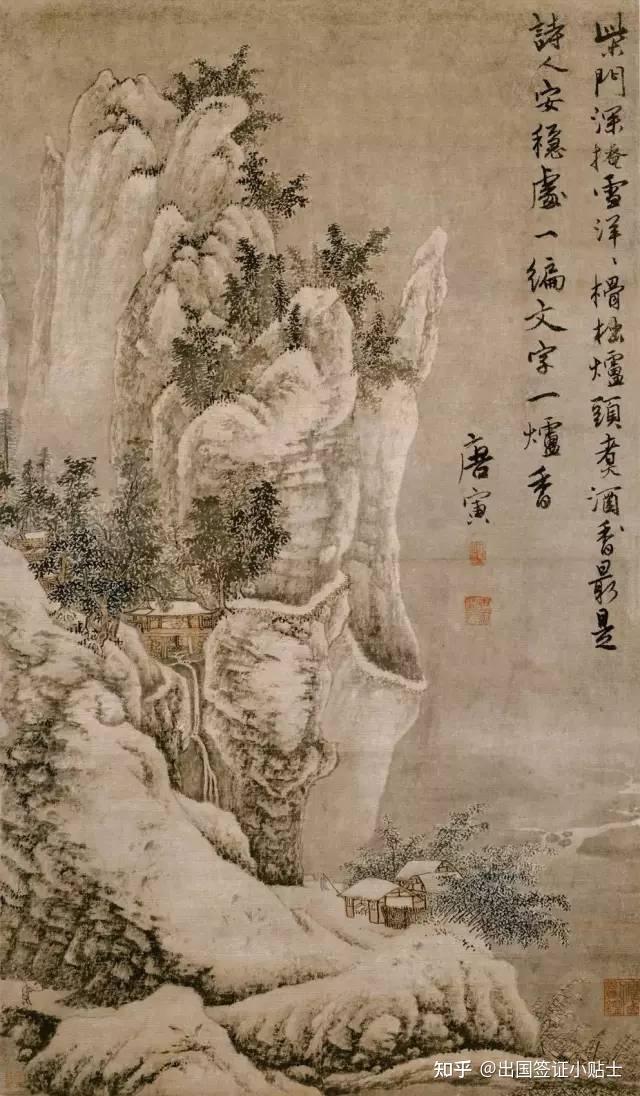 柴門深掩雪洋〻榾柮爐頭煮酒香最是
詩人安穩處一編文字一爐香
唐寅
知乎 @出国签证小贴士